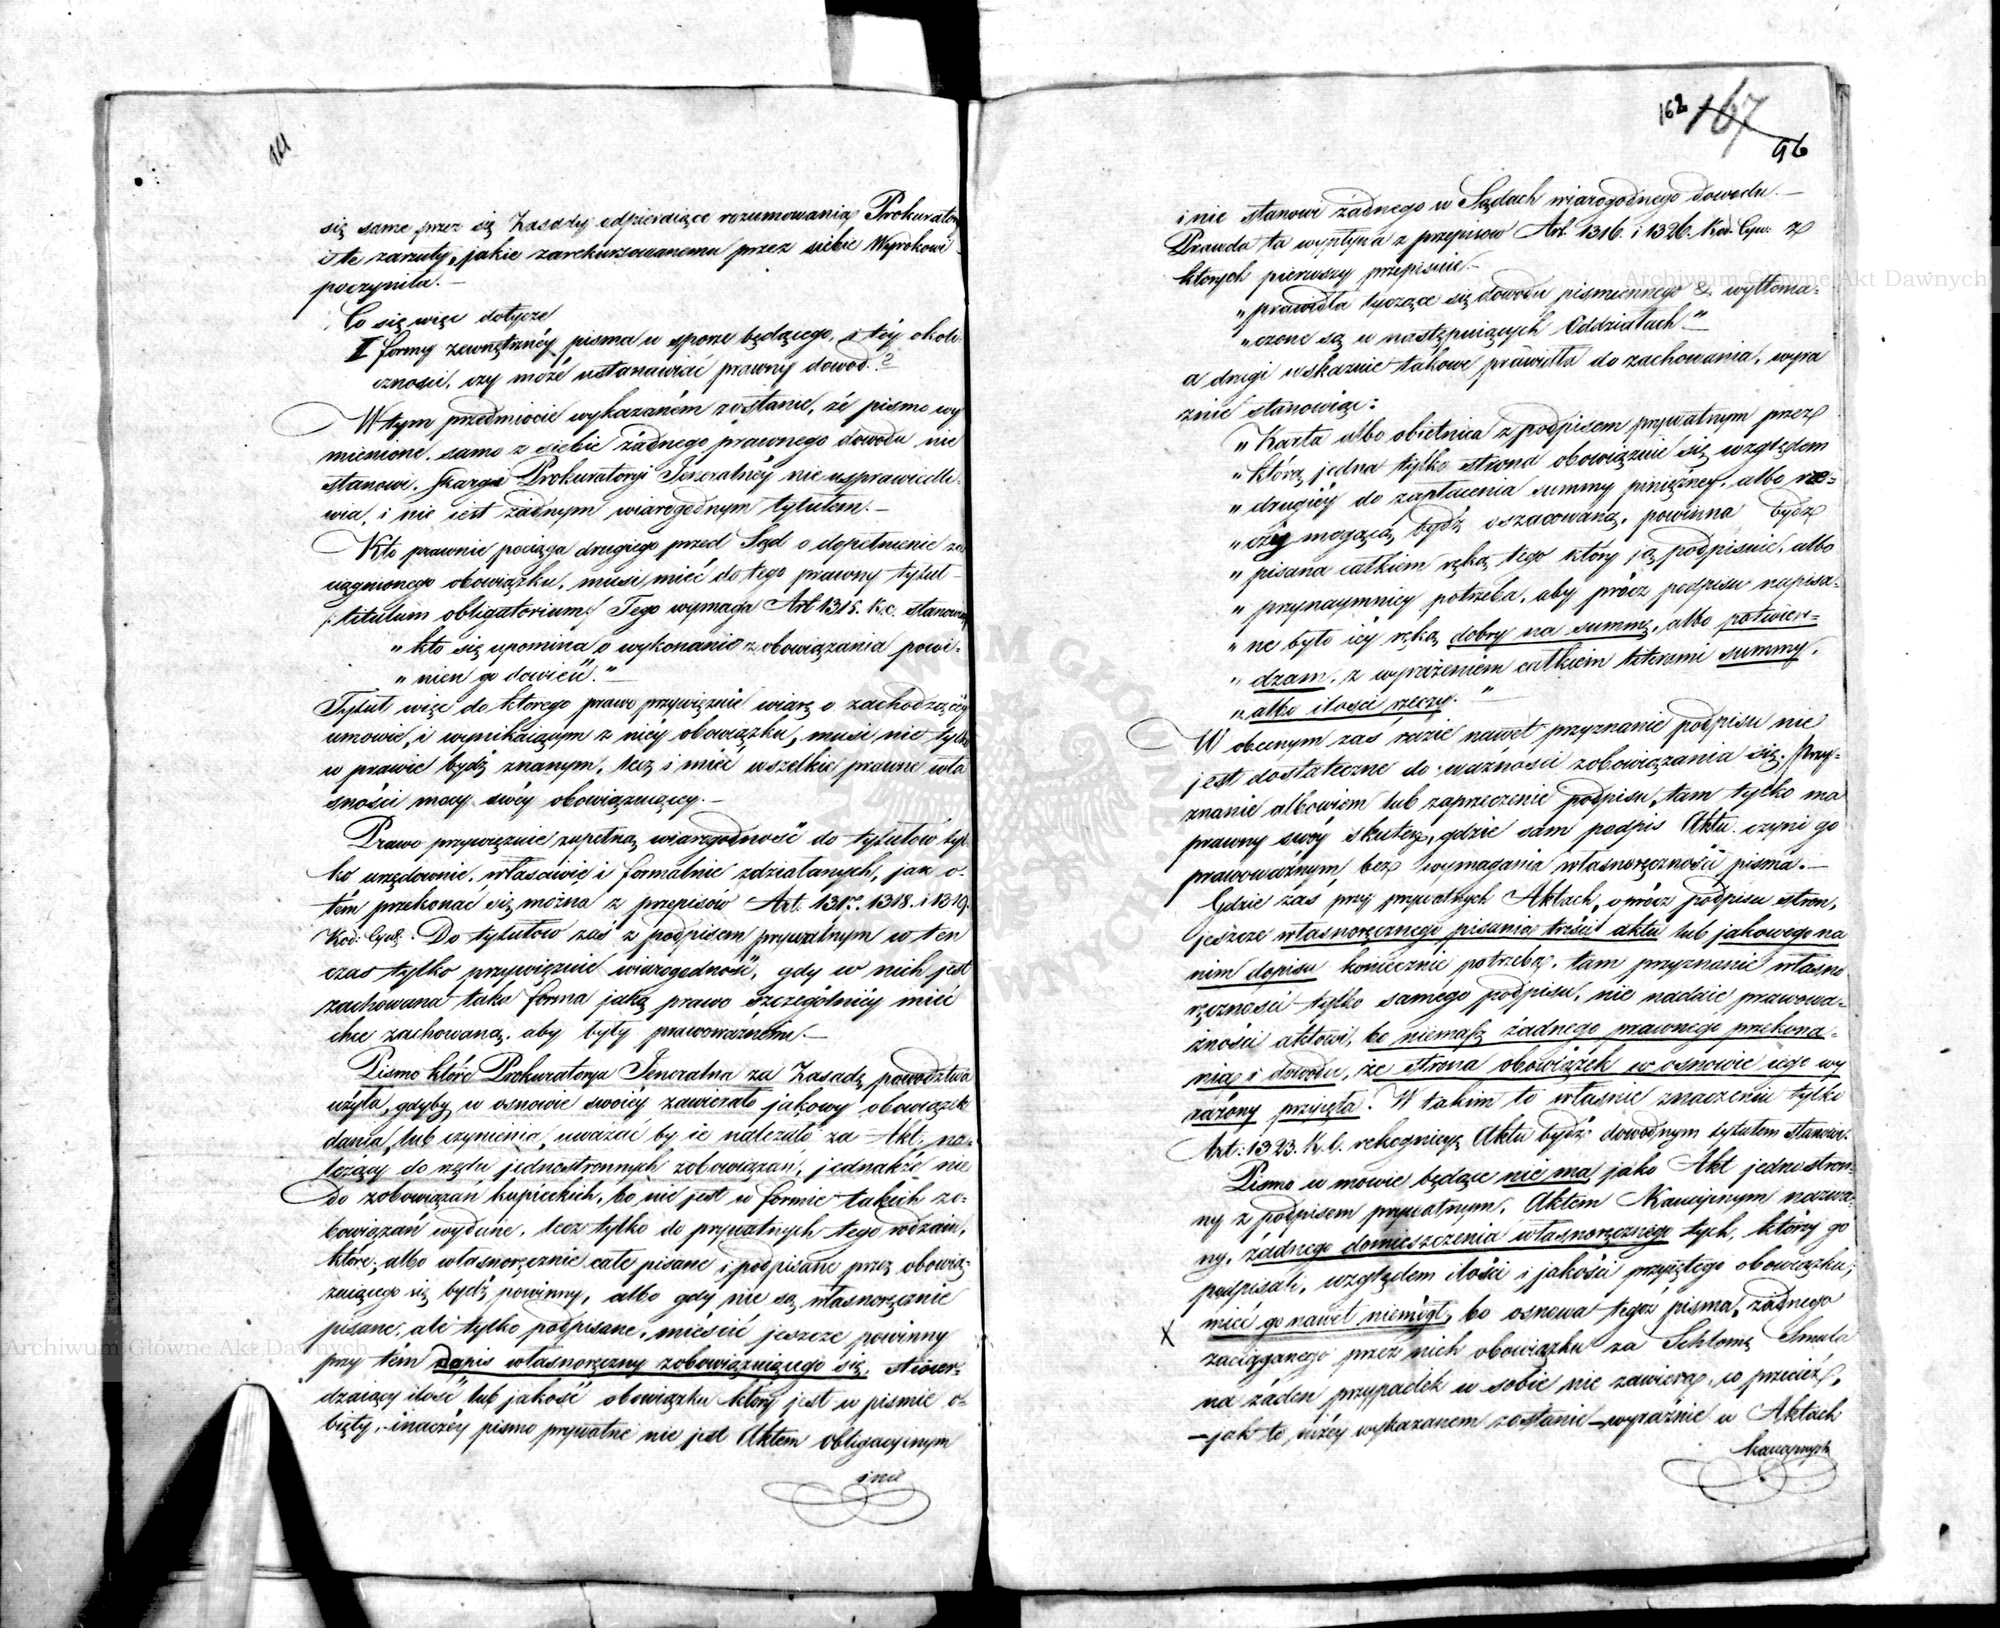 161
się same przez się Zasady odpieraiące rozumowania Prokuratoryi
i te zarzuty, jakie zarekurzowanemu przez siebie Wyrokowi
poczyniła. —
Co się więc dotycze
I formy zewnętrznéy pisma w sporze będącego, i téy okoli-
cznosci, czy może ustanawiać prawny dowod.?
W tym przedmiocie wykazaném zostanie, że pismo wy
mienione, samo z siebie żadnego prawnego dowodu nie
stanowi, skargi Prokuratoryi Jeneralnéy nie usprawiedli-
wia, i nie iest żadnym wiarogodnym tytułem. —
Kto prawnie pociąga drugiego przed Sąd o dopełnienie za
ciągnionego obowiązku, musi mieć do tego prawny tytuł —
/: titulum obligatorium :/ Tego wymaga Art 1315. K.C. stanowiąc
„ kto się upomina o wykonanie zobowiązania powi-
„ nien go dowieść." —
Tytuł więc do ktorego prawo przywięzuie wiarę o zachodzącéy
umowie, i wynikaiącym z niéy obowiązku, musi nie tylko
w prawie bydź znanym, lecz i mieć wszelkie prawne wła
sności mocy swéy obowięzuiącey. —
Prawo przywięzuie zupełną wiarogodność do tytułów tyl-
ko urzędownie, właściwie i formalnie zdziałanych, jak o-
tém przekonać się można z przepisów Art. 1317. 1318. i 1319.
Kod: Cyw: Do tytułow zaś z podpisem prywatnym w ten
czas tylko przywięzuie wiarogodność, gdy w nich jest
zachowana taka forma jaką prawo szczególniéy mieć
chce zachowaną, aby były prawoważnemi. —
Pismo które Prokuratorya Jeneralna za Zasadę powództwa
użyła, gdyby w osnowie swoiéy zawierało jakowy obowiązek
dania, lub czynienia, uważać by ie należało za Akt, na-
leżący do rzędu jednostronnych zobowiązań, jednakże nie
do zobowiązań kupieckich, bo nie jest w formie takich zo-
bowiązań wydane, lecz tylko do prywatnych tego rodzaiu,
które, albo własnoręcznie całe pisane i podpisane przez obowią-
zuiącego się bydź powinny, albo gdy nie są własnoręcznie
pisane, ale tylko podpisane, mieścić jeszcze powinny
przy tém dopis własnoręczny zobowięzuiącego się, stwier-
dzaiący ilość lub jakość obowiązku który jest w pismie o-
bięty, inaczéy pismo prywatne nie jest Aktem obligacyinym
i nie
162 167
96
i nie stanowi żadnego w Sądach wiarogodnego dowodu. —
Prawda ta wypływa z przepisow Art. 1316. i 1326. Kod. Cyw: z
ktorych pierwszy przepisuie. —
„ prawidła tyczące się dowodu pismiennego & wytłoma-
„ czone są w następuiących Oddziałach." —
a drugi wskazuie takowe prawidła do zachowania, wyra
znie stanowiąc:
„ Karta albo obietnica z podpisem prywatnym przez
„ którą jedna tylko strona obowięzuie się względem
„ drugiéy do zapłacenia summy pieniężney, albo rze-
„ czy mogącéy bydź oszacowaną, powinna bydź
„ pisana całkiem ręką tego ktory ją podpisuie, albo
„ przynaymniey potrzeba, aby prócz podpisu napisa-
„ ne było iéy ręką dobry na summę, albo potwier-
„ dzam, z wyrażeniem całkiem literami summy,
„ albo ilości rzeczy. " —
W obecnym zaś razie nawet przyznanie podpisu nie
jest dostateczne do ważności zobowiązania się, Przy-
znanie albowiem lub zaprzeczenie podpisu, tam tylko ma
prawny swóy skutek, gdzie sam podpis Aktu czyni go
prawoważnym, bez wymagania własnoręczności pisma. —
Gdzie zaś przy prywatnych Aktach, oprócz podpisu stron,
jeszcze własnoręcznego pisania treści aktu lub jakowego na
nim dopisu koniecznie potrzeba, tam przyznanie własno
ręczności tylko samego podpisu, nie nadaie prawowa-
żności aktowi, bo niemasz żadnego prawnego przekona-
nia i dowodu, że strona obowiązek w osnowie iego wy
rażony przyięła. W takim to własnie znaczeniu tylko
Art: 1323. K. C. rekognicyą Aktu bydź dowodnym tytułem stanowi.
Pismo w mowie będące nie ma, jako Akt jednostron-
ny z podpisem prywatnym, Aktem Kaucyinym nazwa-
ny, żadnego domieszczenia własnoręcznego tych, którzy go
podpisali, względem ilości i jakości przyiętego obowiązku,
mieć go nawet niemógł, bo osnowa tegoż pisma, żadnego
X zaciągganego przez nich obowiązku za Schlomę Smula
na żaden przypadek w sobie nie zawiera, co przecież,
— jak to niżéy wykazanem zostanie — wyraźnie w Aktach
kaucyinych
Archiwum Główne Akt Dawnych
Archiwum Główne Akt Dawnych